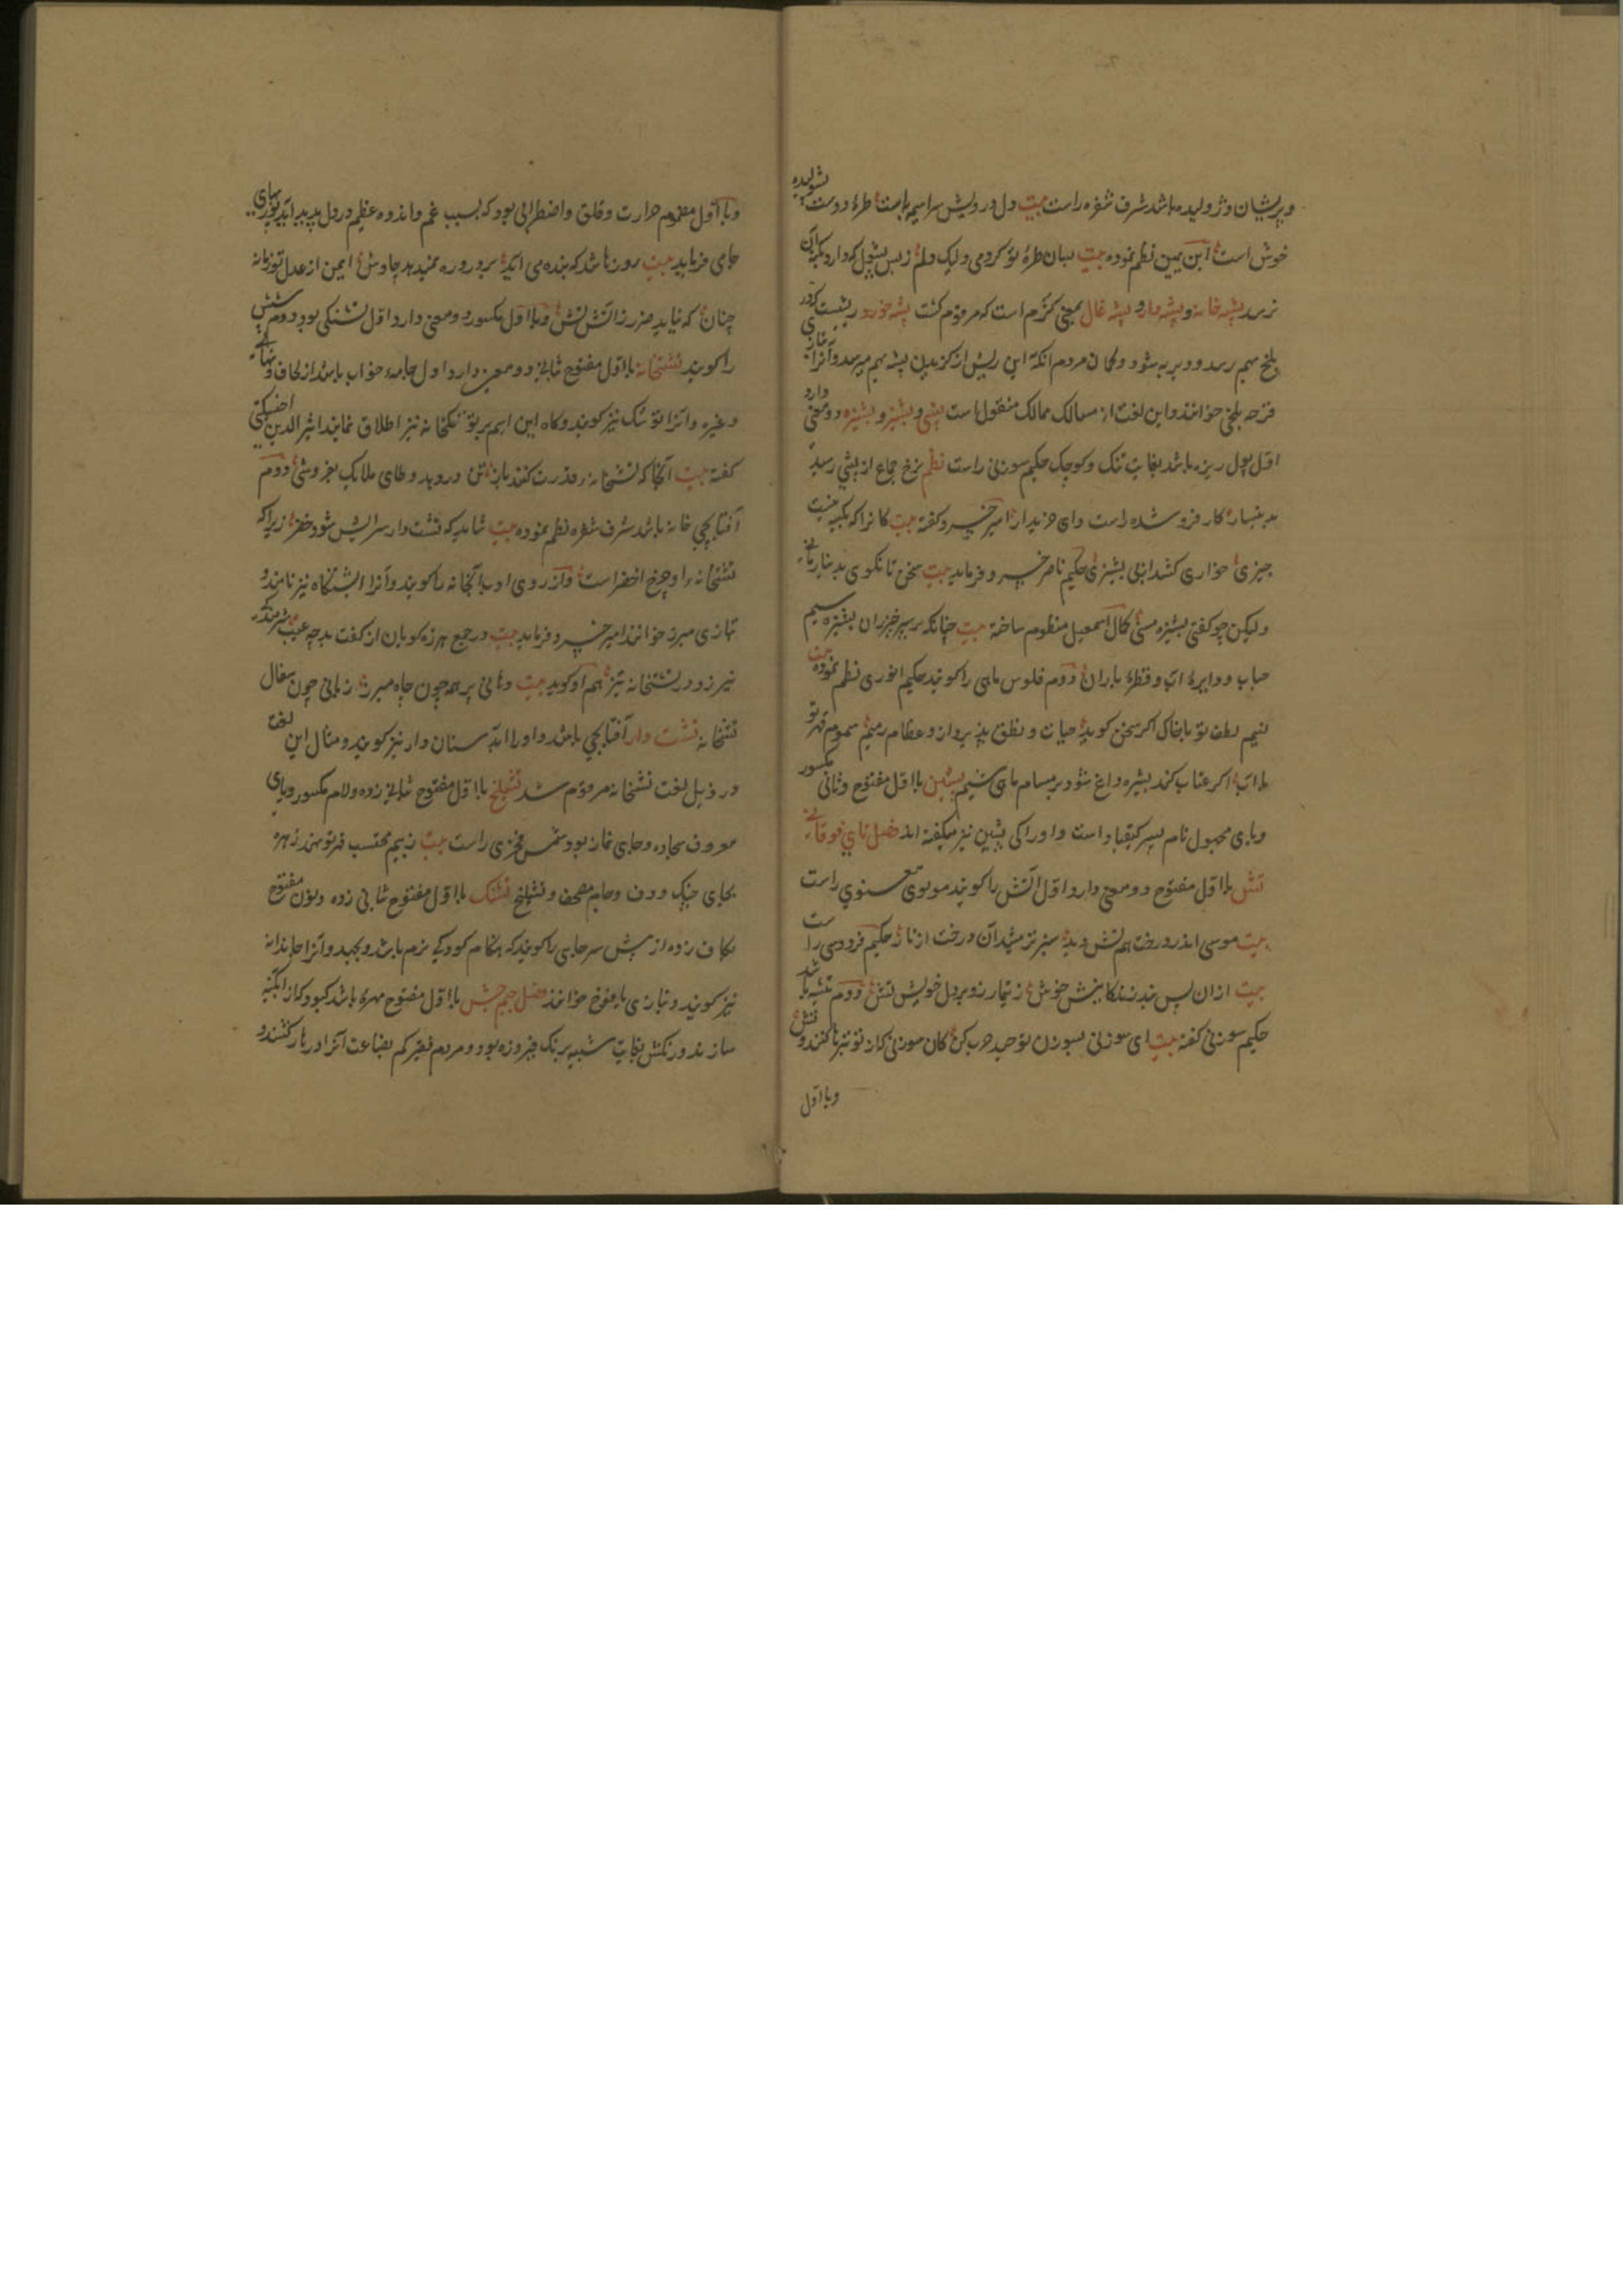 و پریشان و ژولیده باشد شرف شفره راست بیت دل درویش سراسیمه بامت طرهٔ دوست بشولیده
خوش است ابن یمین نظم نموده بیت بسان طرهٔ تو کردمی ولیک دلم ز بس بشول که دارد بکنه آن
نرسد پشه خانه و پشه دار و پشه غال بمعنی کژم است که مرقوم گشت پشه خورد ریشیست که در
بلخ بهم رسد و دیر به شود و گمان مردم آنکه این ریش از گزیدن پشه بهم میرسد و آنرا بتازی
قرحه بلخی خوانند و این لغت از مسالک ممالک منقول است پشی و پشیز و پشیزه دو معنی دارد
اول پول ریزه باشد بغایت تنک و کوچک حکیم سوزنی راست نظم نرخ جماع از پشی رسید
بدینار کار فروشنده راست وای خریدار امیر خسرو گفته بیت کانرا که بکیسه نیست
چیزی خواری کشد از پی پشیزی حکیم ناصر خسرو فرماید بیت سخن تا نگوی بدینار مانی
ولیکن چو گفتی پشیزه مسی کمال اسمعیل منظوم ساخته بیت چنانکه بر سپر خیزران پشیزه سیم
حباب و دایرهٔ آب و قطرهٔ باران دوم فلوس ماهی را گویند حکیم انوری نظم نموده بیت
نسیم لطف تو با خاک اگر سخن گوید حیات و نطق پذیرد ازو عظام رمیم سموم قهر تو
با آب اگر عتاب کند پشیزه داغ شود بر مسام ماهی شیم پشین با اول مفتوح و ثانی مکسور
و یای مجهول نام پسر کیقباد است و او را کی پشین نیز میگفته اند فصل تای فوقانی
تش با اول مفتوح دو معنی دارد اول آتش را گویند مولوی معنوی راست
بیت موسی اندر درخت هم تش دید سبزتر میشد آن درخت از نار حکیم فردوسی راست
بیت ازان پس بد زندگانیش خوش ز تیمار زد بر دل خویش تش دوم تیشه باشد
حکیم سوزنی گفته بیت ای سوزنی بسوزن توحید حرب کن کان سوزنی که از تو تبر ناکنند و تش
و با اول
و با اول مضموم حرارت و قلق و اضطرابی بود که بسبب غم و اندوه عظیم در دل پدید آید پوربهای
جامی فرماید بیت روز باشد که بنده می آید بر در و ره نمیدهد چاوش ایمن از عدل تو زمانه
چنان که نیاید ضرر ز آتش تش و با اول مکسور دو معنی دارد اول تشنگی بود دوم شپش
را گویند تشتخانه با اول مفتوح ثانی دو معنی دارد اول جامهٔ خواب باشد از لحاف و نهالی
و غیره و آنرا توشک نیز گویند و گاه این اسم بر توشکخانه نیز اطلاق نمایند اثیر الدین اخسیکتی
گفته بیت آنجا که تشتخانه قدرت کنند باز تن در دهد وطای ملایک بفروشی دوم
آفتابچی خانه باشد شرف شفره نظم نموده بیت شاید که تشت دار سرایش شود خضر زیرا که
تشتخانه را و چرخ اخضر است و از روی ادب آبخانه را گویند و آنرا آبشتگاه نیز نامند و
بتازی مبرز خوانند امیر خسرو فرماید بیت در جمع هرزه گویان از گفت بد چه عیب
نیرزد در تشتخانه تیز هم او گوید بیت دهانی پر همه چون چاه مبرز زبانی چون سفال
تشتخانه تشت دار آفتابچی باشد و او را آبدستان دار نیز گویند و مثال این لغت
در ذیل لغت تشتخانه مرقوم شد تشلیخ با اول مفتوح ثانی زده و لام مکسور و یای
معروف سجاده و جای نماز بود شمس فخری راست بیت ز بیم محتسب قهر تو نهد زهره
بجای چنگ و دف و جام مصحف و تشلیخ تشنک با اول مفتوح ثانی زده و نون مفتوح
بکاف زده از پیش سر جایی را گویند که هنگام کودکی نرم باشد و بجهد و آنرا جاندانه
نیز گویند و بتازی یافوخ خوانند فصل جیم جش با اول مفتوح مهرهٔ باشد کبود که از آبگینه
سازند و رنگش بغایت شبیه برنگ فیروزه بود و مردم فقیر کم بضاعت آنرا در تار کشند و